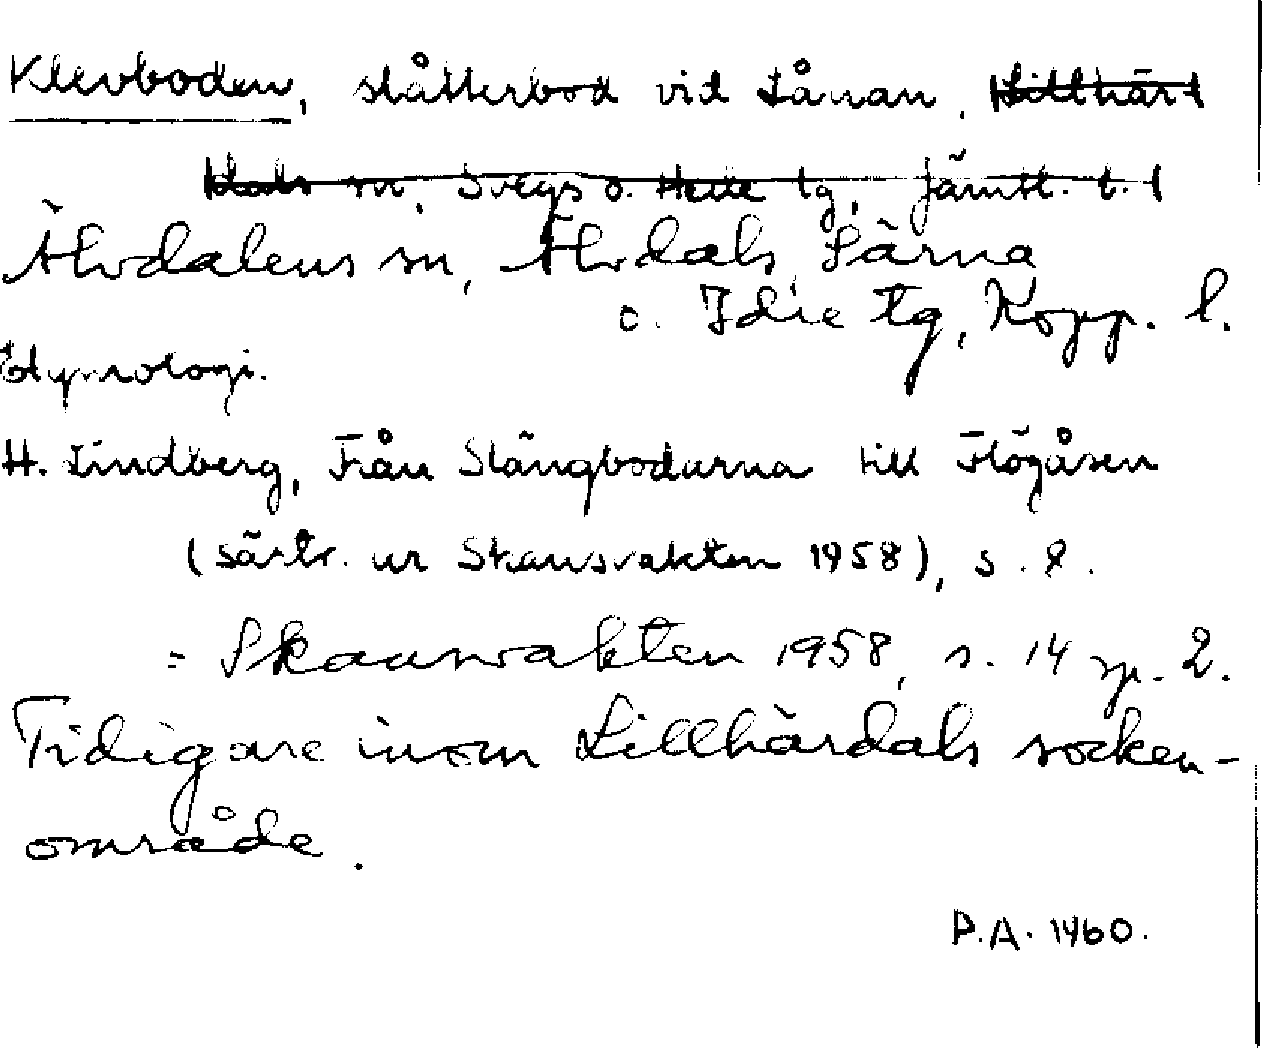 Klevboden, slåtterbod vid Lånan, Lillhär-
dals sn, Svegs o. Hede tg, Jämtl. l.
Älvdalens sn, Älvdals, Särna
o. Idre tg, Kopp. l.
Etymologi.
H. Lindberg, Från Slängbodarna till Flögåsen
(särtr. ur Skansvakten 1958), s. 2.
= Skansvakten 1958, s. 14 sp. 2.
Tidigare inom Lillhärdals socken-
område.
P.A. 1460.